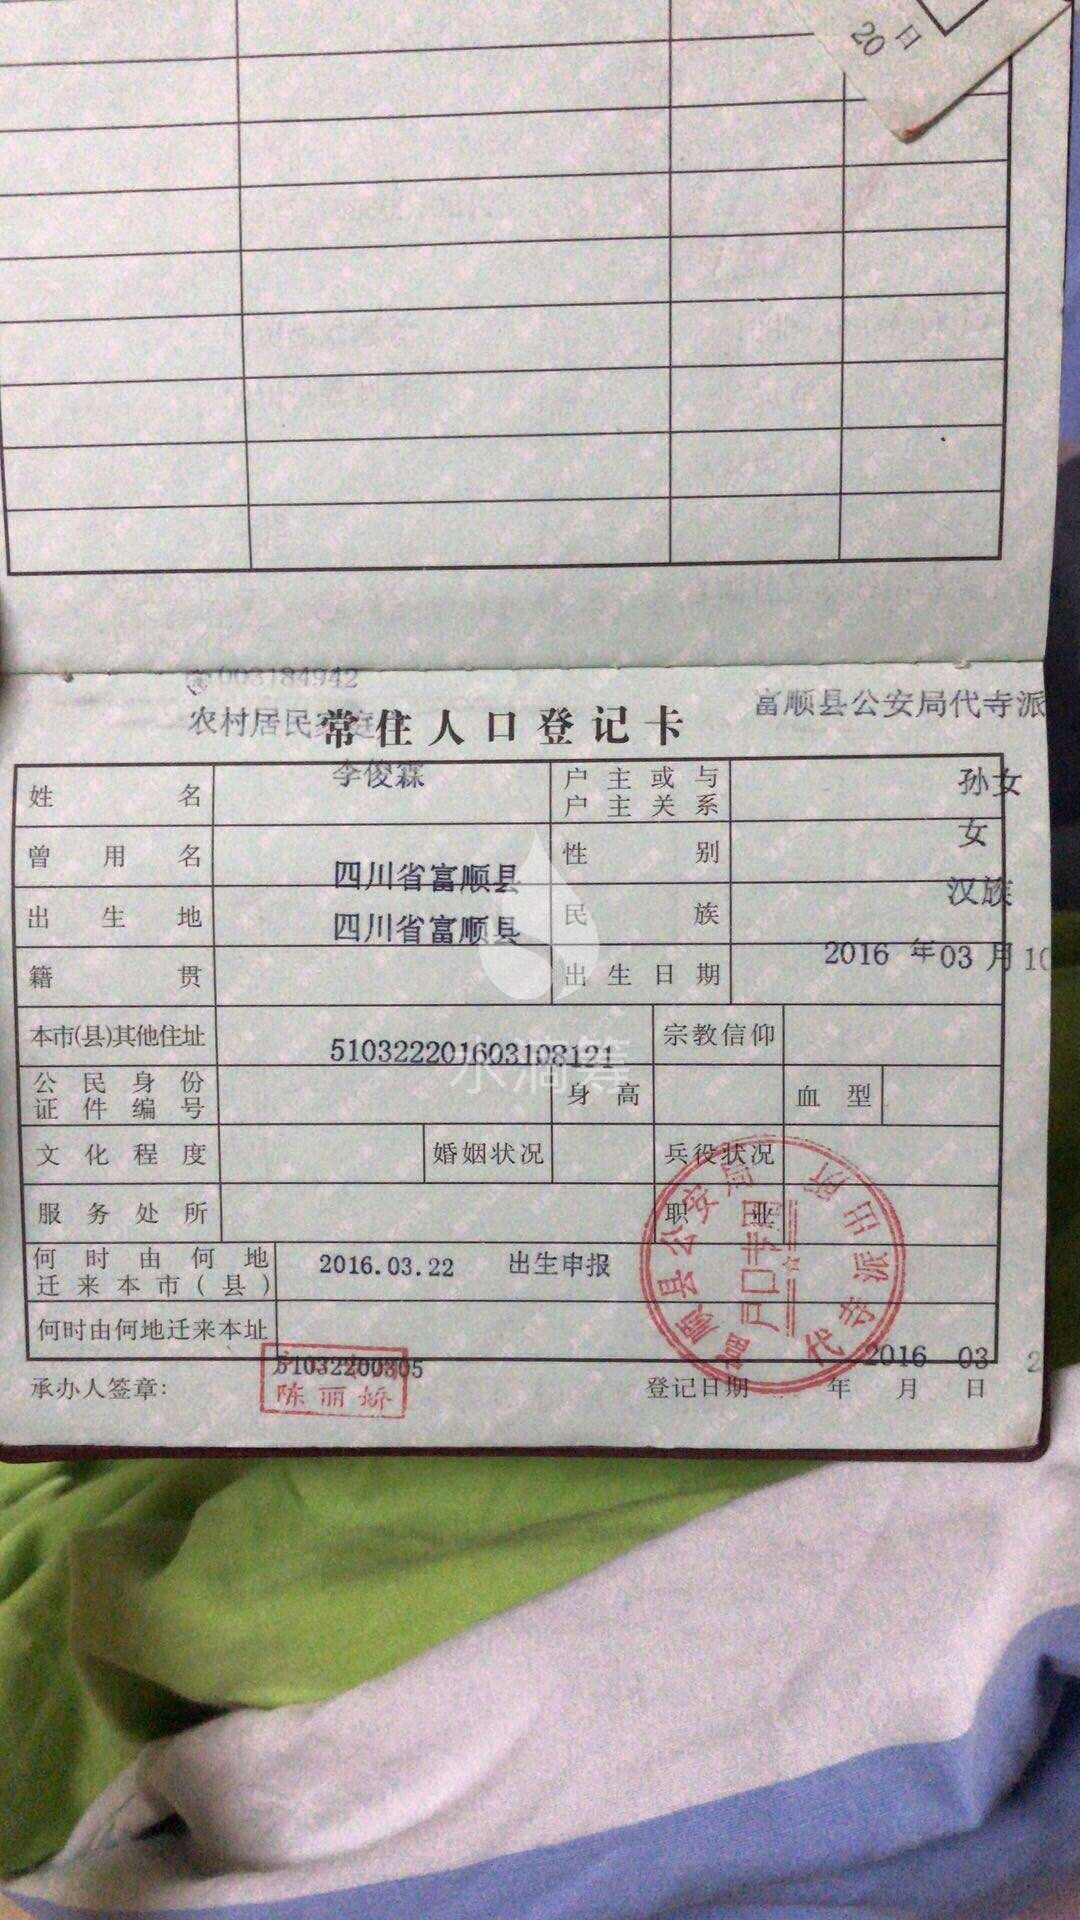 20 日
003184942
农村居民家庭
富顺县公安局代寺派
常住人口登记卡
姓名 李俊霖 户主或与户主关系 孙女
曾用名 性别 女
出生地 四川省富顺县 民族 汉族
籍贯 四川省富顺县 出生日期 2016 年 03 月 10
本市(县)其他住址 宗教信仰
公民身份证件编号 510322201603108121 身高 血型
文化程度 婚姻状况 兵役状况
服务处所 职业
何时由何地迁来本市(县) 2016.03.22 出生申报
何时由何地迁来本址
承办人签章: 51032200305
陈丽娇
登记日期 2016 年 03 月 2 日
富顺县公安局代寺派出所
户口专用
水滴筹